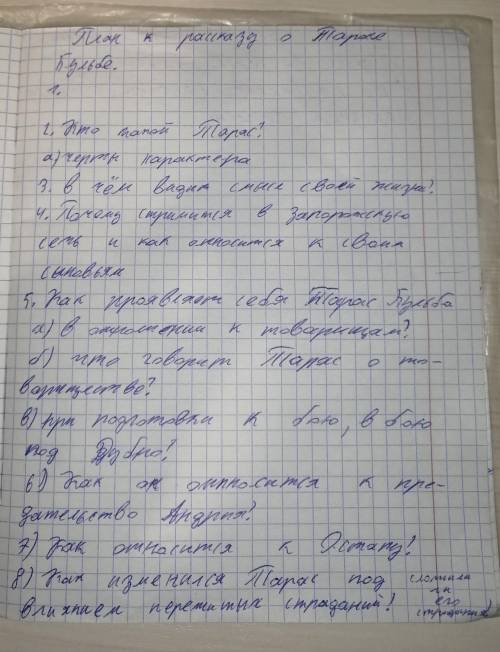 План к рассказу о Тарасе
Бульбе.
1.
2. Кто такой Тарас?
а) черты характера
3. в чём видит смысл своей жизни?
4. Почему стримится в запорожскую
сечь и как относится к своим
сыновьям
5. Как проявляет себя Тарас Бульба
а) в отношении к товарищам?
б) что говорит Тарас о то-
вариществе?
в) при подготовки к бою, в бою
под Дубно?
6) Как он относится к пре-
дательство Андрия?
7) Как относится к Остапу?
8) Как изменился Тарас под сломили
ли
его
страдания?
влиянием пережитых страданий?